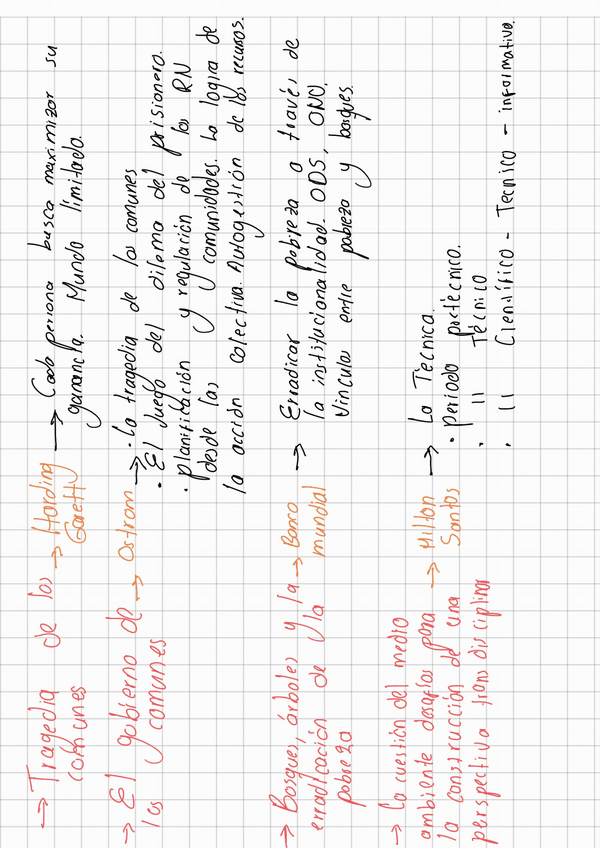 → Tragedia de los
comunes
→ Harding
Garett
→ Cada persona busca maximizar su
ganancia. Mundo limitado.
→ El gobierno de
los comunes
→ Ostrom
→ • La tragedia de los comunes
• El Juego del dilema del prisionero.
• planificación y regulación de los RN
desde las y comunidades. La lógica de
la acción colectiva. Autogestión de los recursos.
→ Bosques, árboles y la
erradicación de la
pobreza
→ Banco
mundial
→ Erradicar la pobreza a través de
la institucionalidad. ODS, ONU.
Vínculos entre pobreza y bosques.
→ La cuestión del medio
ambiente desafíos para
la construcción de una
perspectiva transdisciplinar
→ Milton
Santos
→ La Técnica.
• periodo
• 11 Técnico
• 11 Científico - Tecnico - informativo.